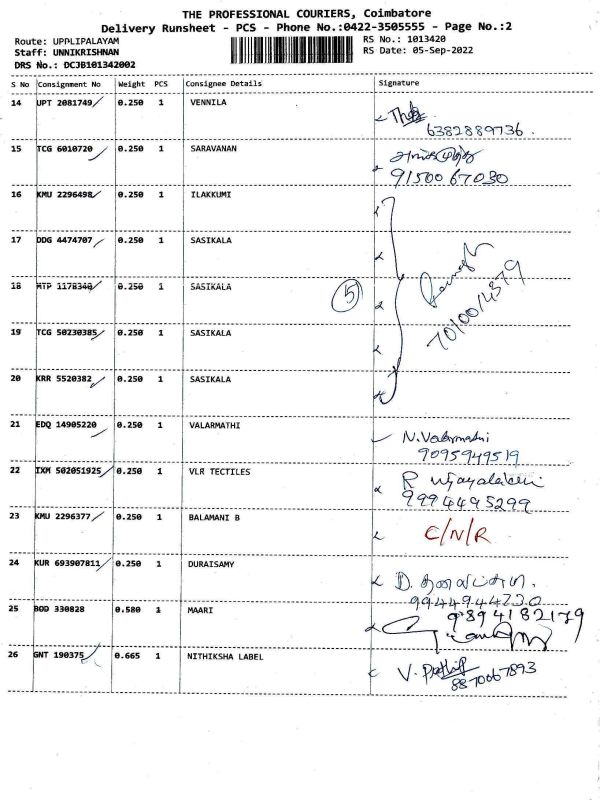 THE PROFESSIONAL COURIERS, Coimbatore
Delivery Runsheet - PCS - Phone No.:0422-3505555 - Page No.:2
Route: UPPLIPALAYAM RS No.: 1013420
Staff: UNNIKRISHNAN RS Date: 05-Sep-2022
DRS No.: DCJB101342002
S No Consignment No Weight PCS Consignee Details Signature
14 UPT 2081749 0.250 1 VENNILA
6382889736.
15 TCG 6010720 0.250 1 SARAVANAN
9150067030
16 KMU 2296498 0.250 1 ILAKKUMI
17 DDG 4474707 0.250 1 SASIKALA
18 MTP 1178340 0.250 1 SASIKALA 5
19 TCG 50230385 0.250 1 SASIKALA
20 KRR 5520382 0.250 1 SASIKALA
21 EDQ 14905220 0.250 1 VALARMATHI N.Valarmathi
9095949519
22 IXM 502051925 0.250 1 VLR TECTILES R
9994495299
23 KMU 2296377 0.250 1 BALAMANI B C/N/R
24 KUR 693907811 0.250 1 DURAISAMY D.
9944944730
25 BOD 330828 0.580 1 MAARI 9894182179
26 GNT 190375 0.665 1 NITHIKSHA LABEL V.
8870067893